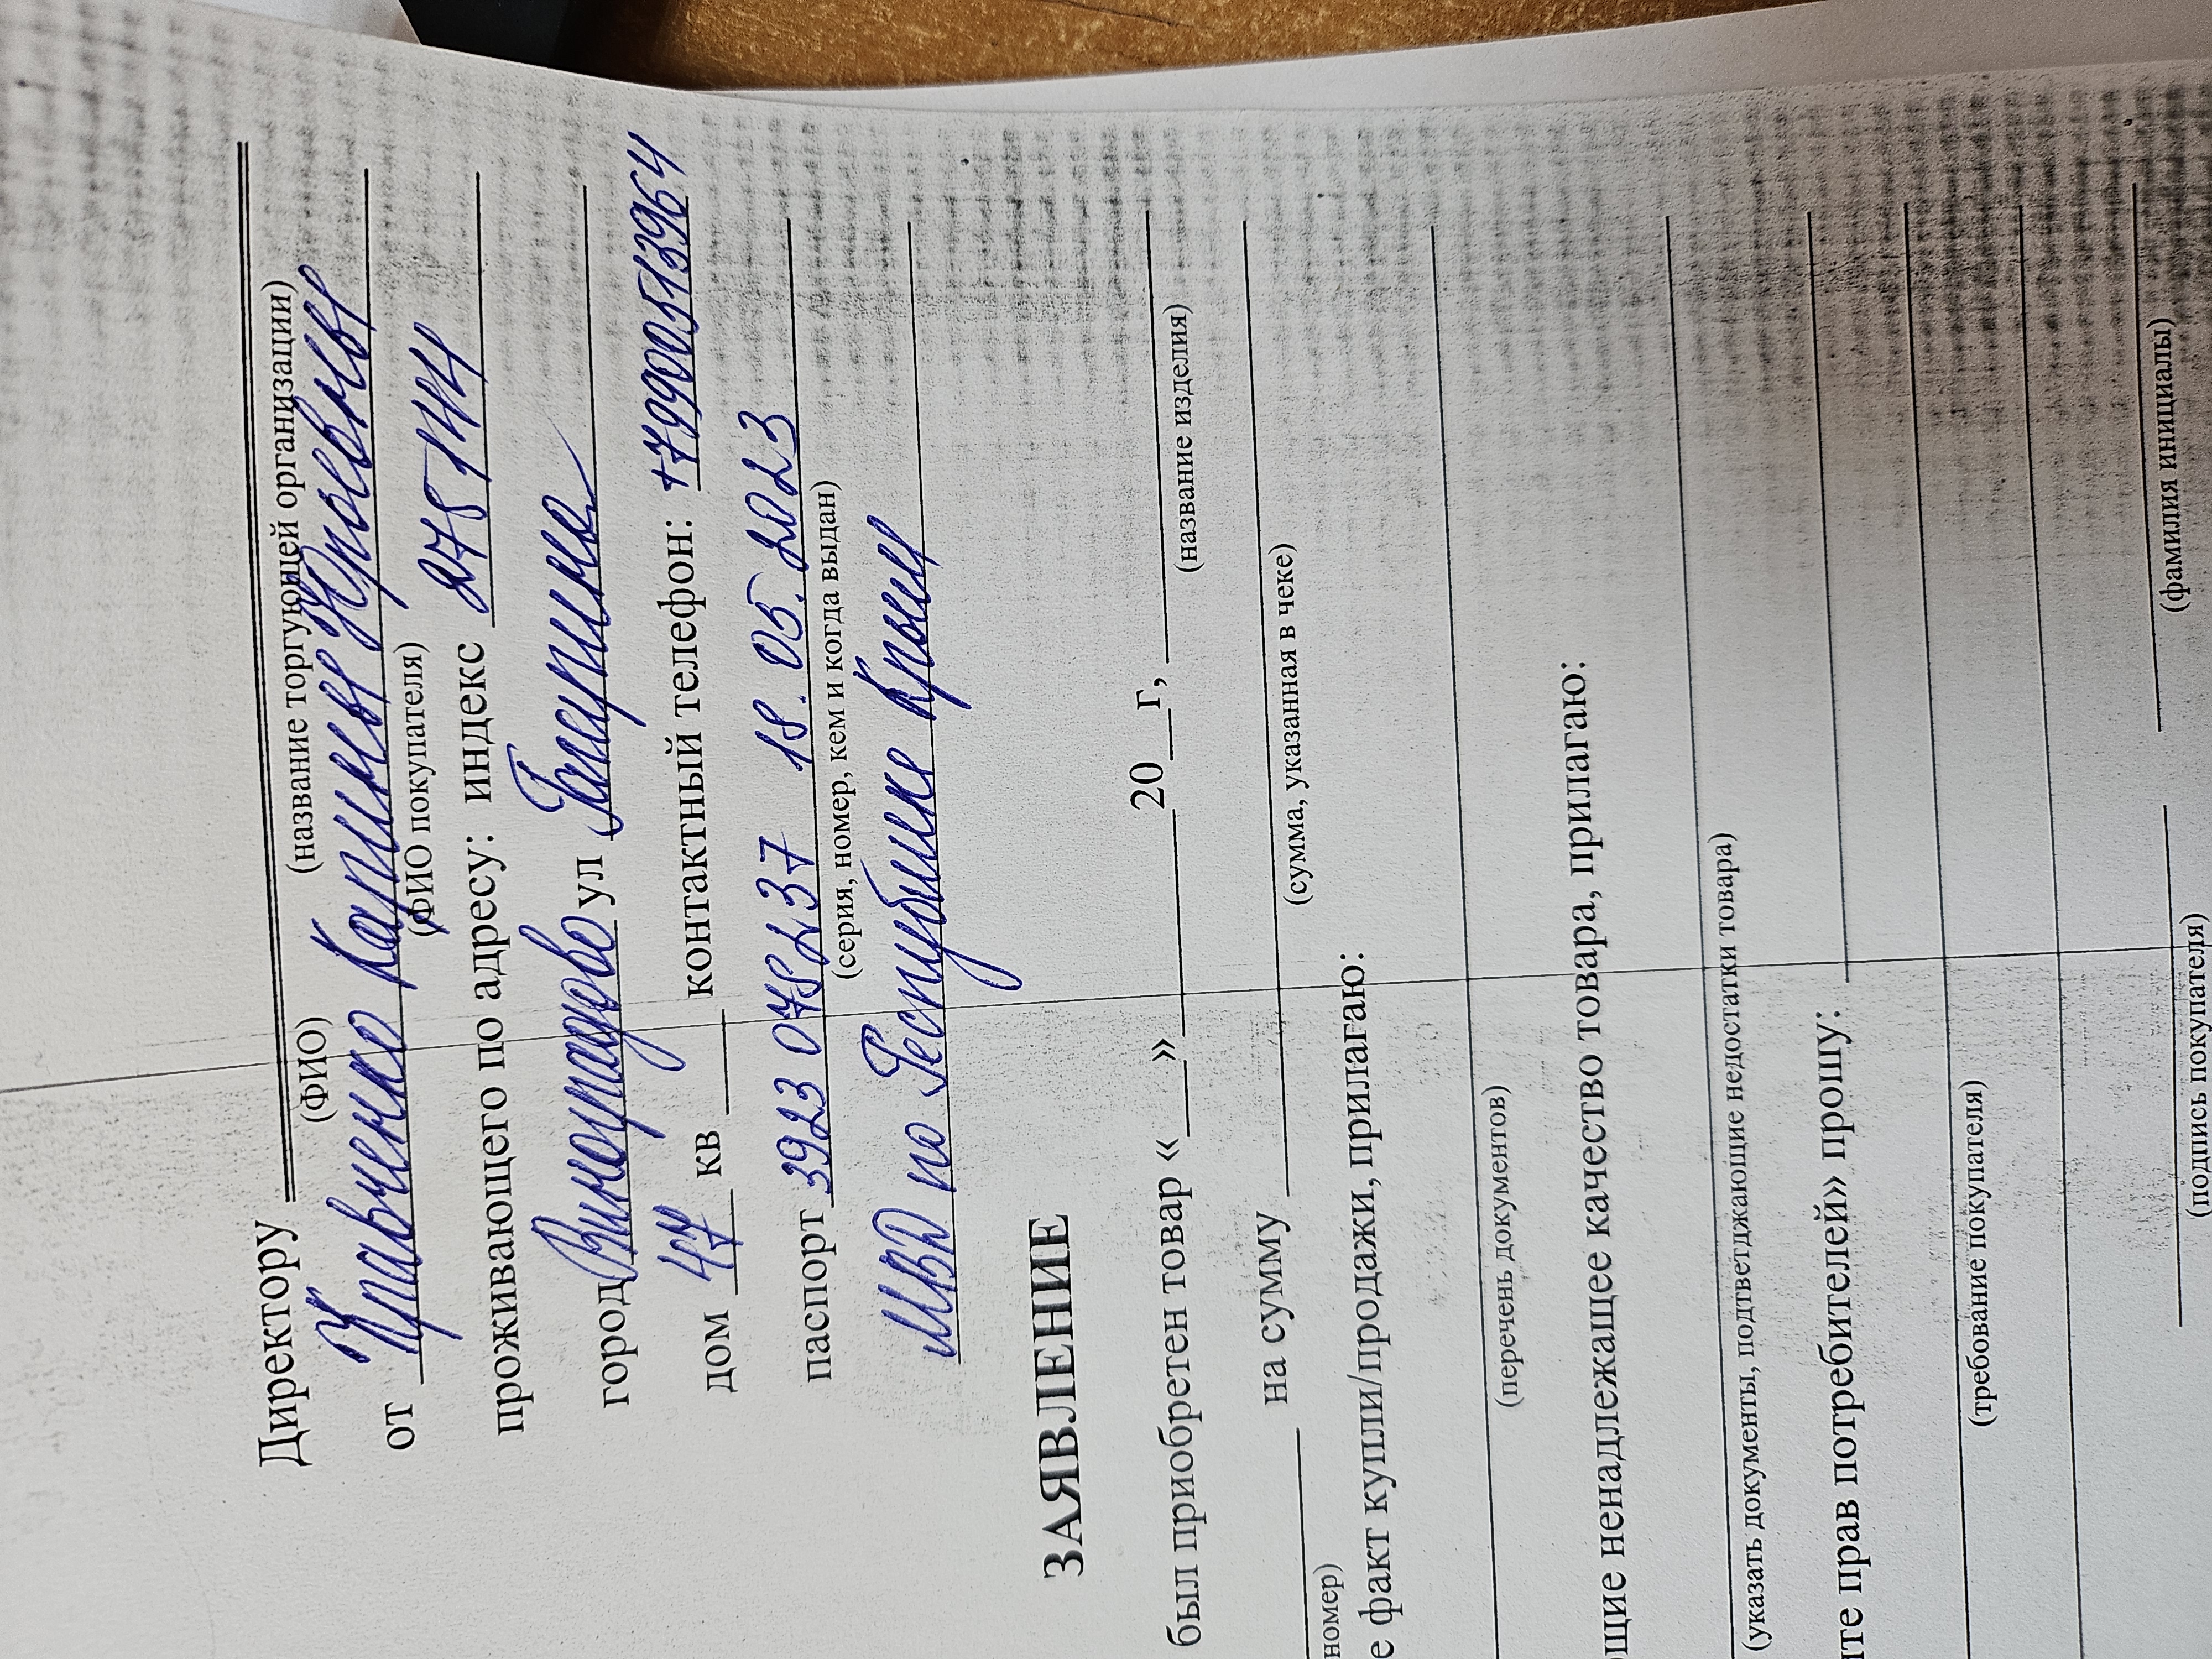 Директору
(ФИО) (название торгующей организации)
от Кравченко Карины Юрьевны
(ФИО покупателя)
проживающего по адресу: индекс 275144
город Виноградово ул Гагарина
дом 47 кв ___ контактный телефон: +79900513964
паспорт 3923 078237 18.05.2023
(серия, номер, кем и когда выдан)
МВД по Республике Крым
ЗАЯВЛЕНИЕ
был приобретен товар «___»__________20__г,
(название изделия)
на сумму
номер) (сумма, указанная в чеке)
е факт купли/продажи, прилагаю:
(перечень документов)
щие ненадлежащее качество товара, прилагаю:
(указать документы, подтверджающие недостатки товара)
ите прав потребителей» прошу:
(требование покупателя)
(подпись покупателя) (фамилия инициалы)